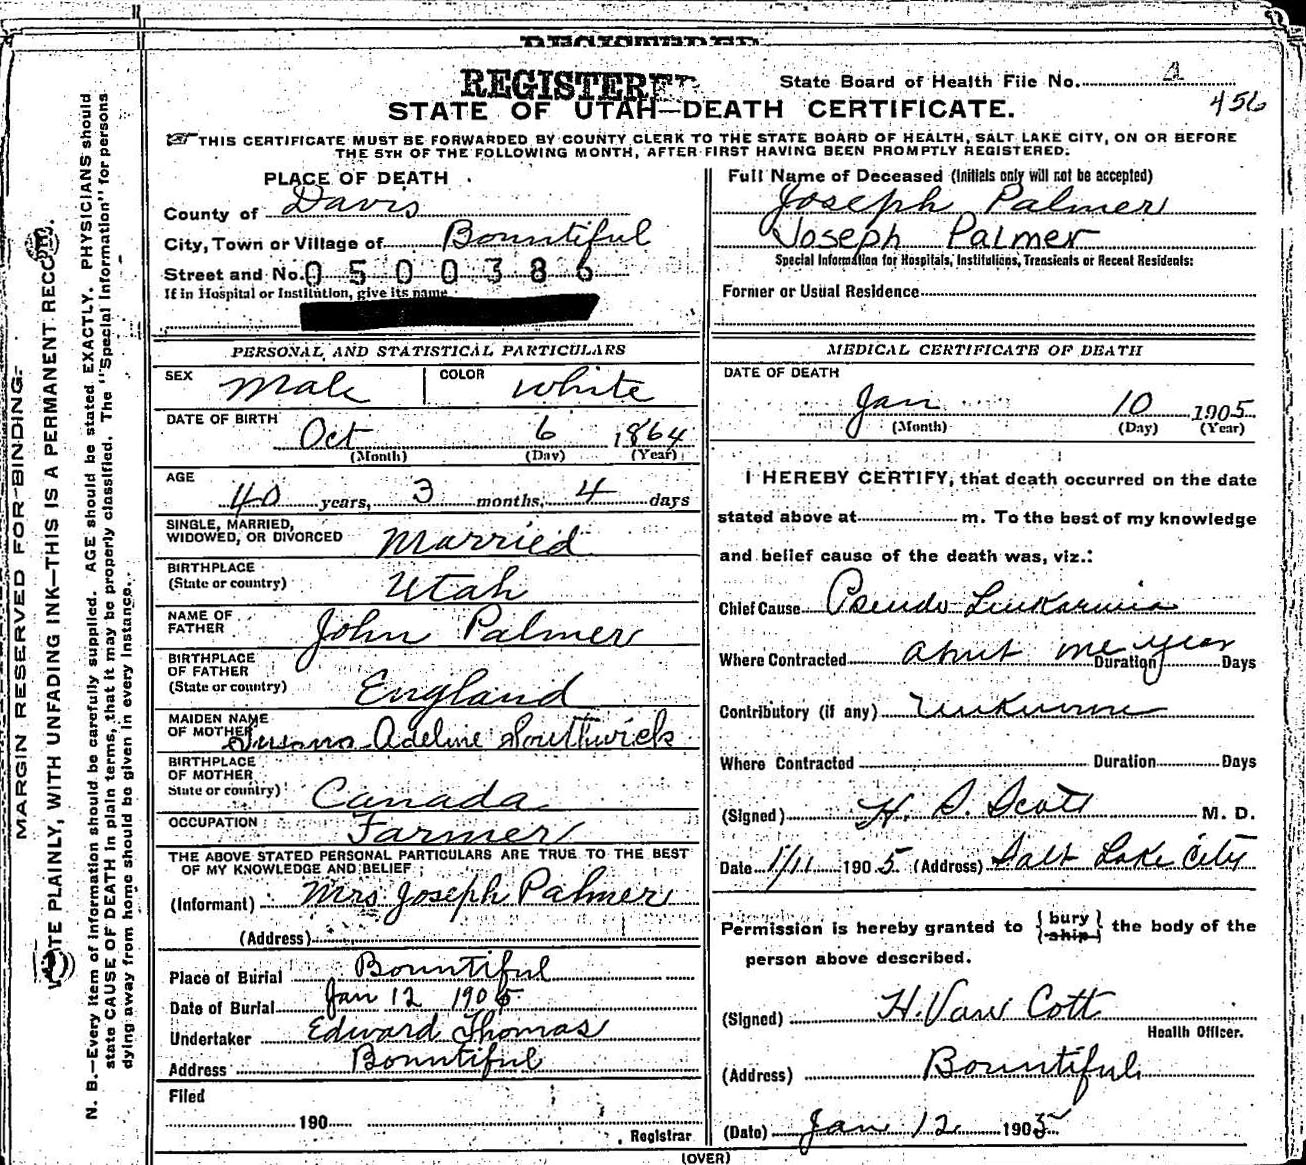 REGISTERED
REGISTERED
State Board of Health File No. 4
456
STATE OF UTAH—DEATH CERTIFICATE.
THIS CERTIFICATE MUST BE FORWARDED BY COUNTY CLERK TO THE STATE BOARD OF HEALTH, SALT LAKE CITY, ON OR BEFORE
THE 5TH OF THE FOLLOWING MONTH, AFTER FIRST HAVING BEEN PROMPTLY REGISTERED.
MARGIN RESERVED FOR BINDING.
PLAINLY, WITH UNFADING INK—THIS IS A PERMANENT RECORD.
N. B.—Every item of information should be carefully supplied. AGE should be stated EXACTLY. PHYSICIANS should
state CAUSE OF DEATH in plain terms, that it may be properly classified. The "Special Information" for persons
dying away from home should be given in every instance.
PLACE OF DEATH
County of Davis
City, Town or Village of Bountiful
Street and No. 0500386
If in Hospital or Institution, give its name
PERSONAL AND STATISTICAL PARTICULARS
SEX Male COLOR White
DATE OF BIRTH Oct 6 1864
(Month) (Day) (Year)
AGE
40 years, 3 months, 4 days
SINGLE, MARRIED,
WIDOWED, OR DIVORCED Married
BIRTHPLACE
(State or country) Utah
NAME OF
FATHER John Palmer
BIRTHPLACE
OF FATHER
(State or country) England
MAIDEN NAME
OF MOTHER Adeline Southwick
BIRTHPLACE
OF MOTHER
State or country) Canada
OCCUPATION Farmer
THE ABOVE STATED PERSONAL PARTICULARS ARE TRUE TO THE BEST
OF MY KNOWLEDGE AND BELIEF
(Informant) Mrs Joseph Palmer
(Address)
Place of Burial Bountiful
Date of Burial Jan 12 1905
Undertaker Edward Thomas
Address Bountiful
Filed
190
Registrar
Full Name of Deceased (Initials only will not be accepted)
Joseph Palmer
Joseph Palmer
Special Information for Hospitals, Institutions, Transients or Recent Residents:
Former or Usual Residence
MEDICAL CERTIFICATE OF DEATH
DATE OF DEATH
Jan 10 1905
(Month) (Day) (Year)
I HEREBY CERTIFY, that death occurred on the date
stated above at m. To the best of my knowledge
and belief cause of the death was, viz.:
Chief Cause Pseudo Leukaemia
Where Contracted about one year Duration Days
Contributory (if any) Unknown
Where Contracted Duration Days
(Signed) H. S. Scott M. D.
Date 1/11 1905 (Address) Salt Lake City
Permission is hereby granted to { bury ship } the body of the
person above described.
(Signed) H. Van Cott
Health Officer.
(Address) Bountiful
(Date) Jan 12 1905
(OVER)